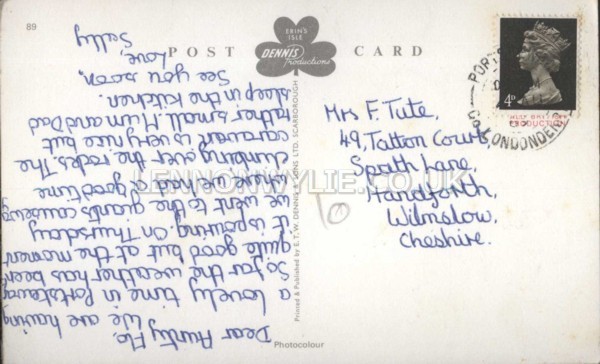 89
POST CARD
ERIN'S
ISLE
DENNIS
Productions
Dear Aunty Flo,
We are having
a lovely time in Portstewart
So far the weather has been
quite good but at the moment
it is pouring. On Thursday
we went to the giants causeway
where we had a good time
climbing over the rocks. The
caravan is very nice but
rather small. Mum and Dad
sleep in the kitchen.
See you soon,
Love,
Sally
Mrs F. Tute,
49, Tatton Court,
Spath Lane,
Handforth,
Wilmslow,
Cheshire.
TO
4D
CO. LONDONDERRY
Printed & Published by E.T.W. DENNIS & SONS LTD. SCARBOROUGH
Photocolour
LENNONWYLIE.CO.UK